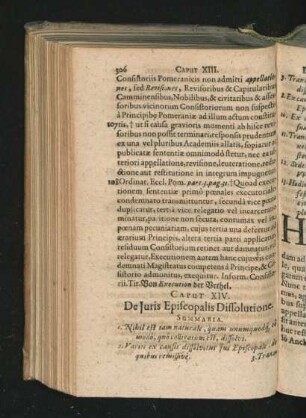 306 CAPUT XIII.
Consistoriis Pomeranicis non admitti appellatio-
nes, sed Revisiones, Revisoribus & Capitularibus
Camminensibus, Nobilibus, & civitatibus & asses-
soribus vicinorum Consistoriorum non suspectis
à Principibꝰ Pomeraniæ ad illum actum constitu-
107tis. † ut si causa gravioris momenti ab hisce revi-
soribus non possit terminari, responsa prudentum
ex una vel pluribus Academiis allatis, sopiatur &
publicatæ sententiæ omnimodò stetur, nec ex ul-
teriori appellatione, revisione, deuteratione, reduc-
ctione aut restitutione in integrum impugnetur.
108 Ordinat. Eccl. Pom. part. 3. pag. 31. † Quoad execu-
tionem sententiæ primò pœnales executoriales
condemnato transmittuntur, secundâ vice pœna
duplicatur, tertia vice relegatio vel incarceratio
minatur, paritione non secuta, comitatur vel im-
ponatur pecuniariam, cujus tertia una deserat
grarium Principis, altera tertia parti applicati
reservatus Consistorialibus, aut condemnatos
relegatur. Executionem autem hanc cujusvis con-
demnati Magistratus competens à Principe, & Con-
sistorio admonitus, exequitur. Inform. Consisto-
rii. Tit. Von Execution der Urthel.
CAPUT XIV.
De Juris Episcopalis Dissolutione.
SUMMARIA.
1. Nihil est tam naturale, quam unumquodq; eo
modo, quo colligatum est, dissolvi.
2. Variis ex causis dissolvitur jus Episcopale, de
quibus remissivè.